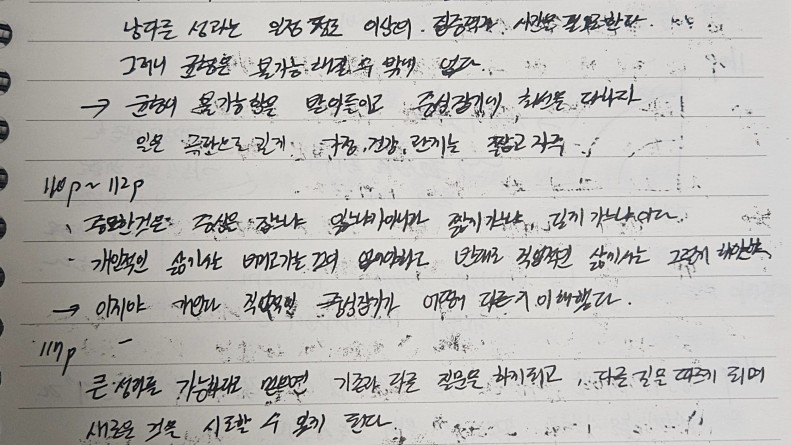 남다른 성과는 일정 정도 이상의 집중력과 시간을 필요한다.
그러니 균형은 불가능해질 수 밖에 없다.
→ 균형이 불가능함을 받아들이고 중심잡기에 최선을 다하자
일은 극단으로 길게 가정, 건강, 관계는 짧고 자주
110p ~ 112p
· 중요한것은 중심을 잡느냐 잃느냐가아니라 짧게 가느냐, 길게 가느냐이다.
· 개인적인 삶에서는 버리고가는 것이 없어야하고 반대로 직업적인 삶에서는 그렇게 해야한다.
→ 이제야 개인과 직업적인 중심잡기가 어떻게 다른지 이해했다.
117p -
큰 성과를 가능하다고 믿으면 기존과 다른 질문을 하게되고, 다른 길을 따르게 되며
새로운 것을 시도할 수 있게 된다